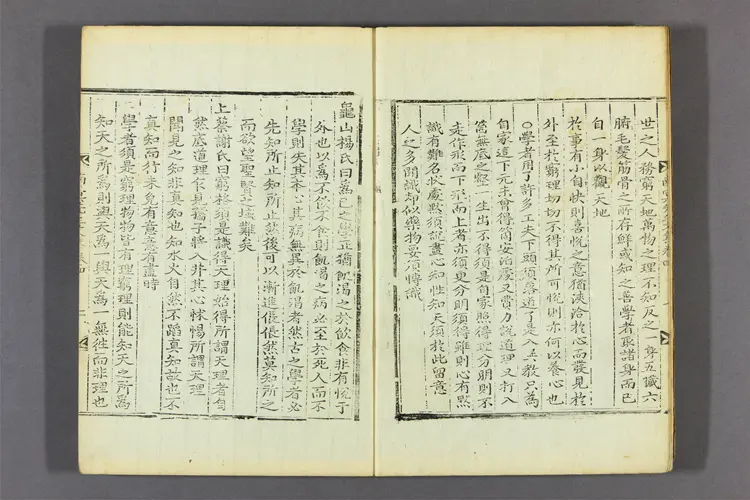 世之人務窮天地萬物之理不知反之一身五臟六
腑毛髮筋骨之所存鮮或知之善學者取諸身而已
自一身以觀天地
於事有小自快則喜悅之意猶浹洽於心而發見於
外至於窮理切切不得其所可悅則亦何以養心也
○學者用了許多工夫下頭須落道了是入異教只爲
自家這下元未曾得箇安泊處又當力說道理又打入
箇無底之壑一生出不得須是自家照得理分明則不
走作形而下形而上者亦須更分明須得雖則心有默
識有難名狀處然須說盡心知性知天須於此留意
人之多聞識却似藥物要須博識
龜山楊氏曰爲己之學正猶飢渴之於飲食非有悅于
外也以爲不飲不食則飢渴之病必至於死人而不
學則失其本心其病無異於飢渴者然古之學者必
先知所止知所止然後可以漸進倀倀然莫知所之
而欲望聖賢之域難矣
上蔡謝氏曰窮格須是識得天理始得所謂天理者自
然底道理乍見孺子將入井其心怵惕所謂天理
聞見之知非眞知也知水火自然不蹈眞知故也不
眞知而行未免有意意有盡時
學者須是窮理物物皆有理窮理則能知天之所爲
知天之所爲則與天爲一與天爲一無往而非理也